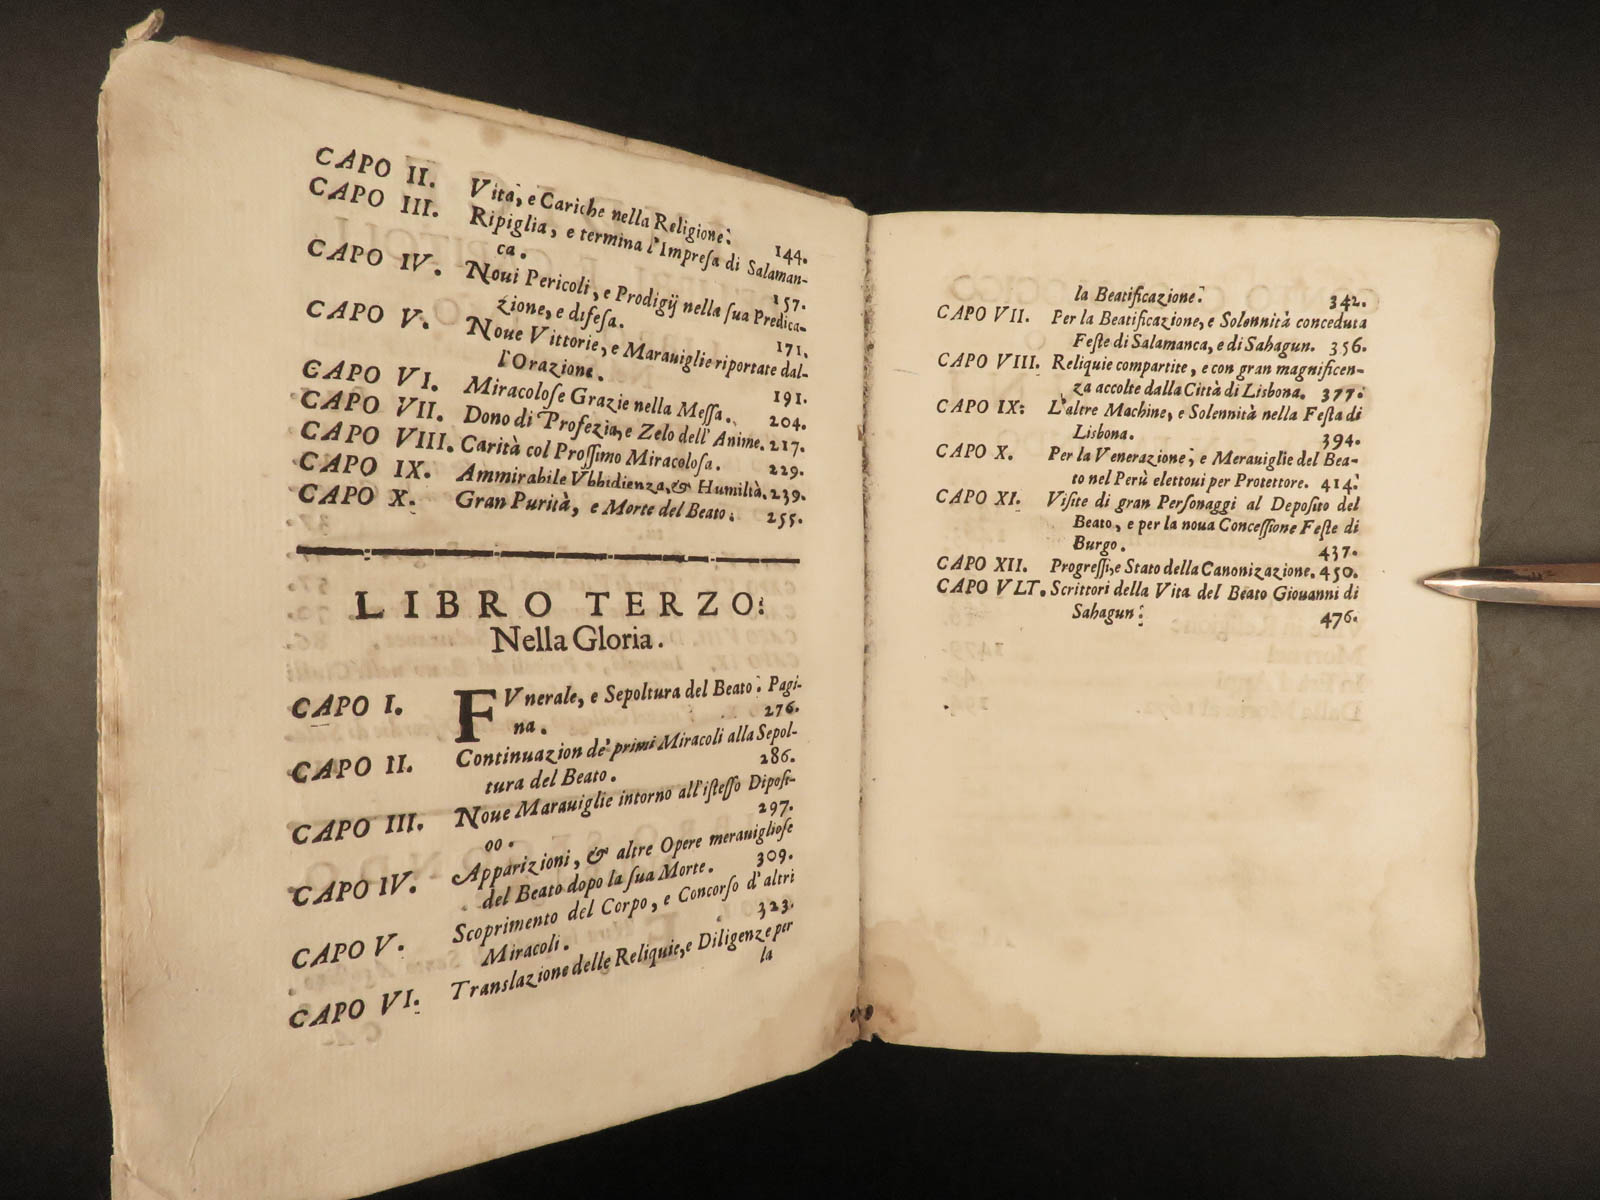 CAPO II. Vita, e Cariche nella Religione. 144.
CAPO III. Ripiglia, e termina l'Impresa di Salaman-
ca. 157.
CAPO IV. Noui Pericoli, e Prodigij nella sua Predica-
zione, e difesa. 171.
CAPO V. Noue Vittorie, e Marauiglie riportate dal-
l'Orazione. 191.
CAPO VI. Miracolose Grazie nella Messa. 204.
CAPO VII. Dono di Profezia, e Zelo dell' Anime. 217.
CAPO VIII. Carità col Prossimo Miracolosa. 229.
CAPO IX. Ammirabile Vbbidienza, & Humiltà. 239.
CAPO X. Gran Purità, e Morte del Beato. 255.
LIBRO TERZO.
Nella Gloria.
CAPO I. FVnerale, e Sepoltura del Beato. Pagi-
na. 276.
CAPO II. Continuazion de' primi Miracoli alla Sepol-
tura del Beato. 286.
CAPO III. Noue Marauiglie intorno all'istesso Diposi-
oo. 297.
CAPO IV. Apparizioni, & altre Opere merauigliose
del Beato dopo la sua Morte. 309.
CAPO V. Scoprimento del Corpo, e Concorso d'altri
Miracoli. 323.
CAPO VI. Translazione delle Reliquie, e Diligenze per
la
la Beatificazione. 342.
CAPO VII. Per la Beatificazione, e Solennità conceduta
Feste di Salamanca, e di Sahagun. 356.
CAPO VIII. Reliquie compartite, e con gran magnificen-
za accolte dalla Città di Lisbona. 377.
CAPO IX. L'altre Machine, e Solennità nella Festa di
Lisbona. 394.
CAPO X. Per la Venerazione, e Merauiglie del Bea-
to nel Perù elettoui per Protettore. 414.
CAPO XI. Visite di gran Personaggi al Deposito del
Beato, e per la noua Concessione Feste di
Burgo. 437.
CAPO XII. Progressi, e Stato della Canonizazione. 450.
CAPO VLT. Scrittori della Vita del Beato Giouanni di
Sahagun. 476.